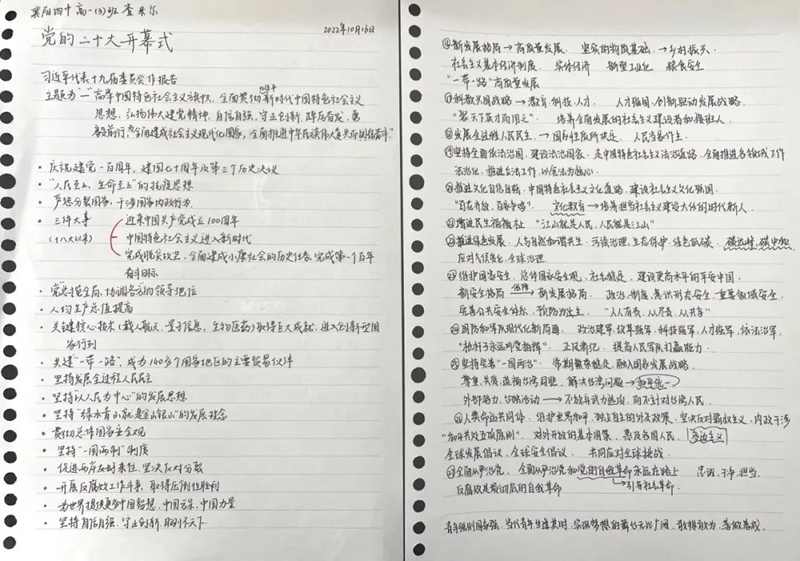 襄阳四中高一(3)班 查米尔
2022年10月16日
党的二十大开幕式
习近平代表十九届委员会作报告
主题为“高举中国特色社会主义旗帜，全面贯彻新时代中国特色社会主义
思想，弘扬伟大建党精神，自信自强、守正创新，踔厉奋发、勇
毅前行，为全面建成社会主义现代化国家，全面推进中华民族伟大复兴而团结奋斗”
• 庆祝建党一百周年，建国七十周年及第三个历史决议
• “人民至上，生命至上”的抗疫思想
• 严惩分裂国家，干涉国家内政行为
• 三件大事 迎来中国共产党成立100周年
(十八大以来) 中国特色社会主义进入新时代
完成脱贫攻坚，全面建成小康社会的历史任务，完成第一个百年
奋斗目标
• 党总揽全局，协调各方的领导地位
• 人均生产总值提高
• 关键核心技术(载人航天，量子信息，生物医药)取得巨大成就，进入创新型国
家行列
• 共建“一带一路”，成为140多个国家地区的主要贸易伙伴
• 坚持发展全过程人民民主
• 坚持“以人民为中心”的发展思想
• 坚持“绿水青山就是金山银山”的发展理念
• 贯彻总体国家安全观
• 坚持“一国两制”制度
• 促进两岸友好来往，坚决反对分裂
• 开展反腐败工作斗争，取得压倒性胜利
• 为世界提供更多中国智慧，中国方案，中国力量
• 坚持自信自强，守正创新，胸怀天下
⑥新发展格局→高质量发展 坚实的物质基础→乡村振兴
社会主义基本经济制度 实体经济 新型工业化 粮食安全
“一带一路”高质量发展
⑦科教兴国战略→教育、科技、人才 人才强国、创新驱动发展战略
“聚天下英才而用之” 培养全面发展的社会主义建设者和接班人
⑧发展全过程人民民主→国家性质所决定 人民当家作主
⑨坚持全面依法治国，建设法治国家 走中国特色社会主义法治道路，全面推进各方面工作
法治化，推进立法工作，以宪法为核心
⑩推进文化自信自强 中国特色社会主义文化道路 建设社会主义文化强国
“百花齐放，百家争鸣” 文化教育→培养担当社会主义建设大任的时代新人
⑪增进民生福祉 “江山就是人民，人民就是江山”
⑫推进绿色发展 人与自然和谐共生 污染治理，生态保护 绿色低碳 碳达峰，碳中和
应对气候变化，全球治理
⑬维护国家安全 总体国家安全观 社会稳定 建设更高水平的平安中国
新安全格局→保障 新发展格局 政治、制度、意识形态安全 重要领域安全
完善公共安全体系 预防为主 “人人有责、人人尽责、人人共享”
⑭国防和军队现代化新局面 政治建军，改革强军，科技强军，人才强军，依法治军
正风肃纪 提高人民军队打赢能力
⑮坚持完善“一国两制” 香港繁荣稳定，融入国家发展战略
尊重、关爱、造福台湾同胞 解决台湾问题→和平统一
外部势力，台独活动→不放弃武力统一，而不针对台湾人民
⑯人类命运共同体 维护世界和平，独立自主的外交政策 坚决反对霸权主义，内政干涉
“和平共处五项原则” 对外开放的基本国策 惠及各国人民
全球发展倡议，全球安全倡议 共同应对全球挑战
⑰全面从严治党 全面从严治党和党的自我革命永远在路上 清正、干净、担当
反腐败是最彻底的自我革命 →引导社会革命
青年强则国家强，当代青年生逢其时，实现梦想的舞台无比广阔，敢想敢为，善作善成